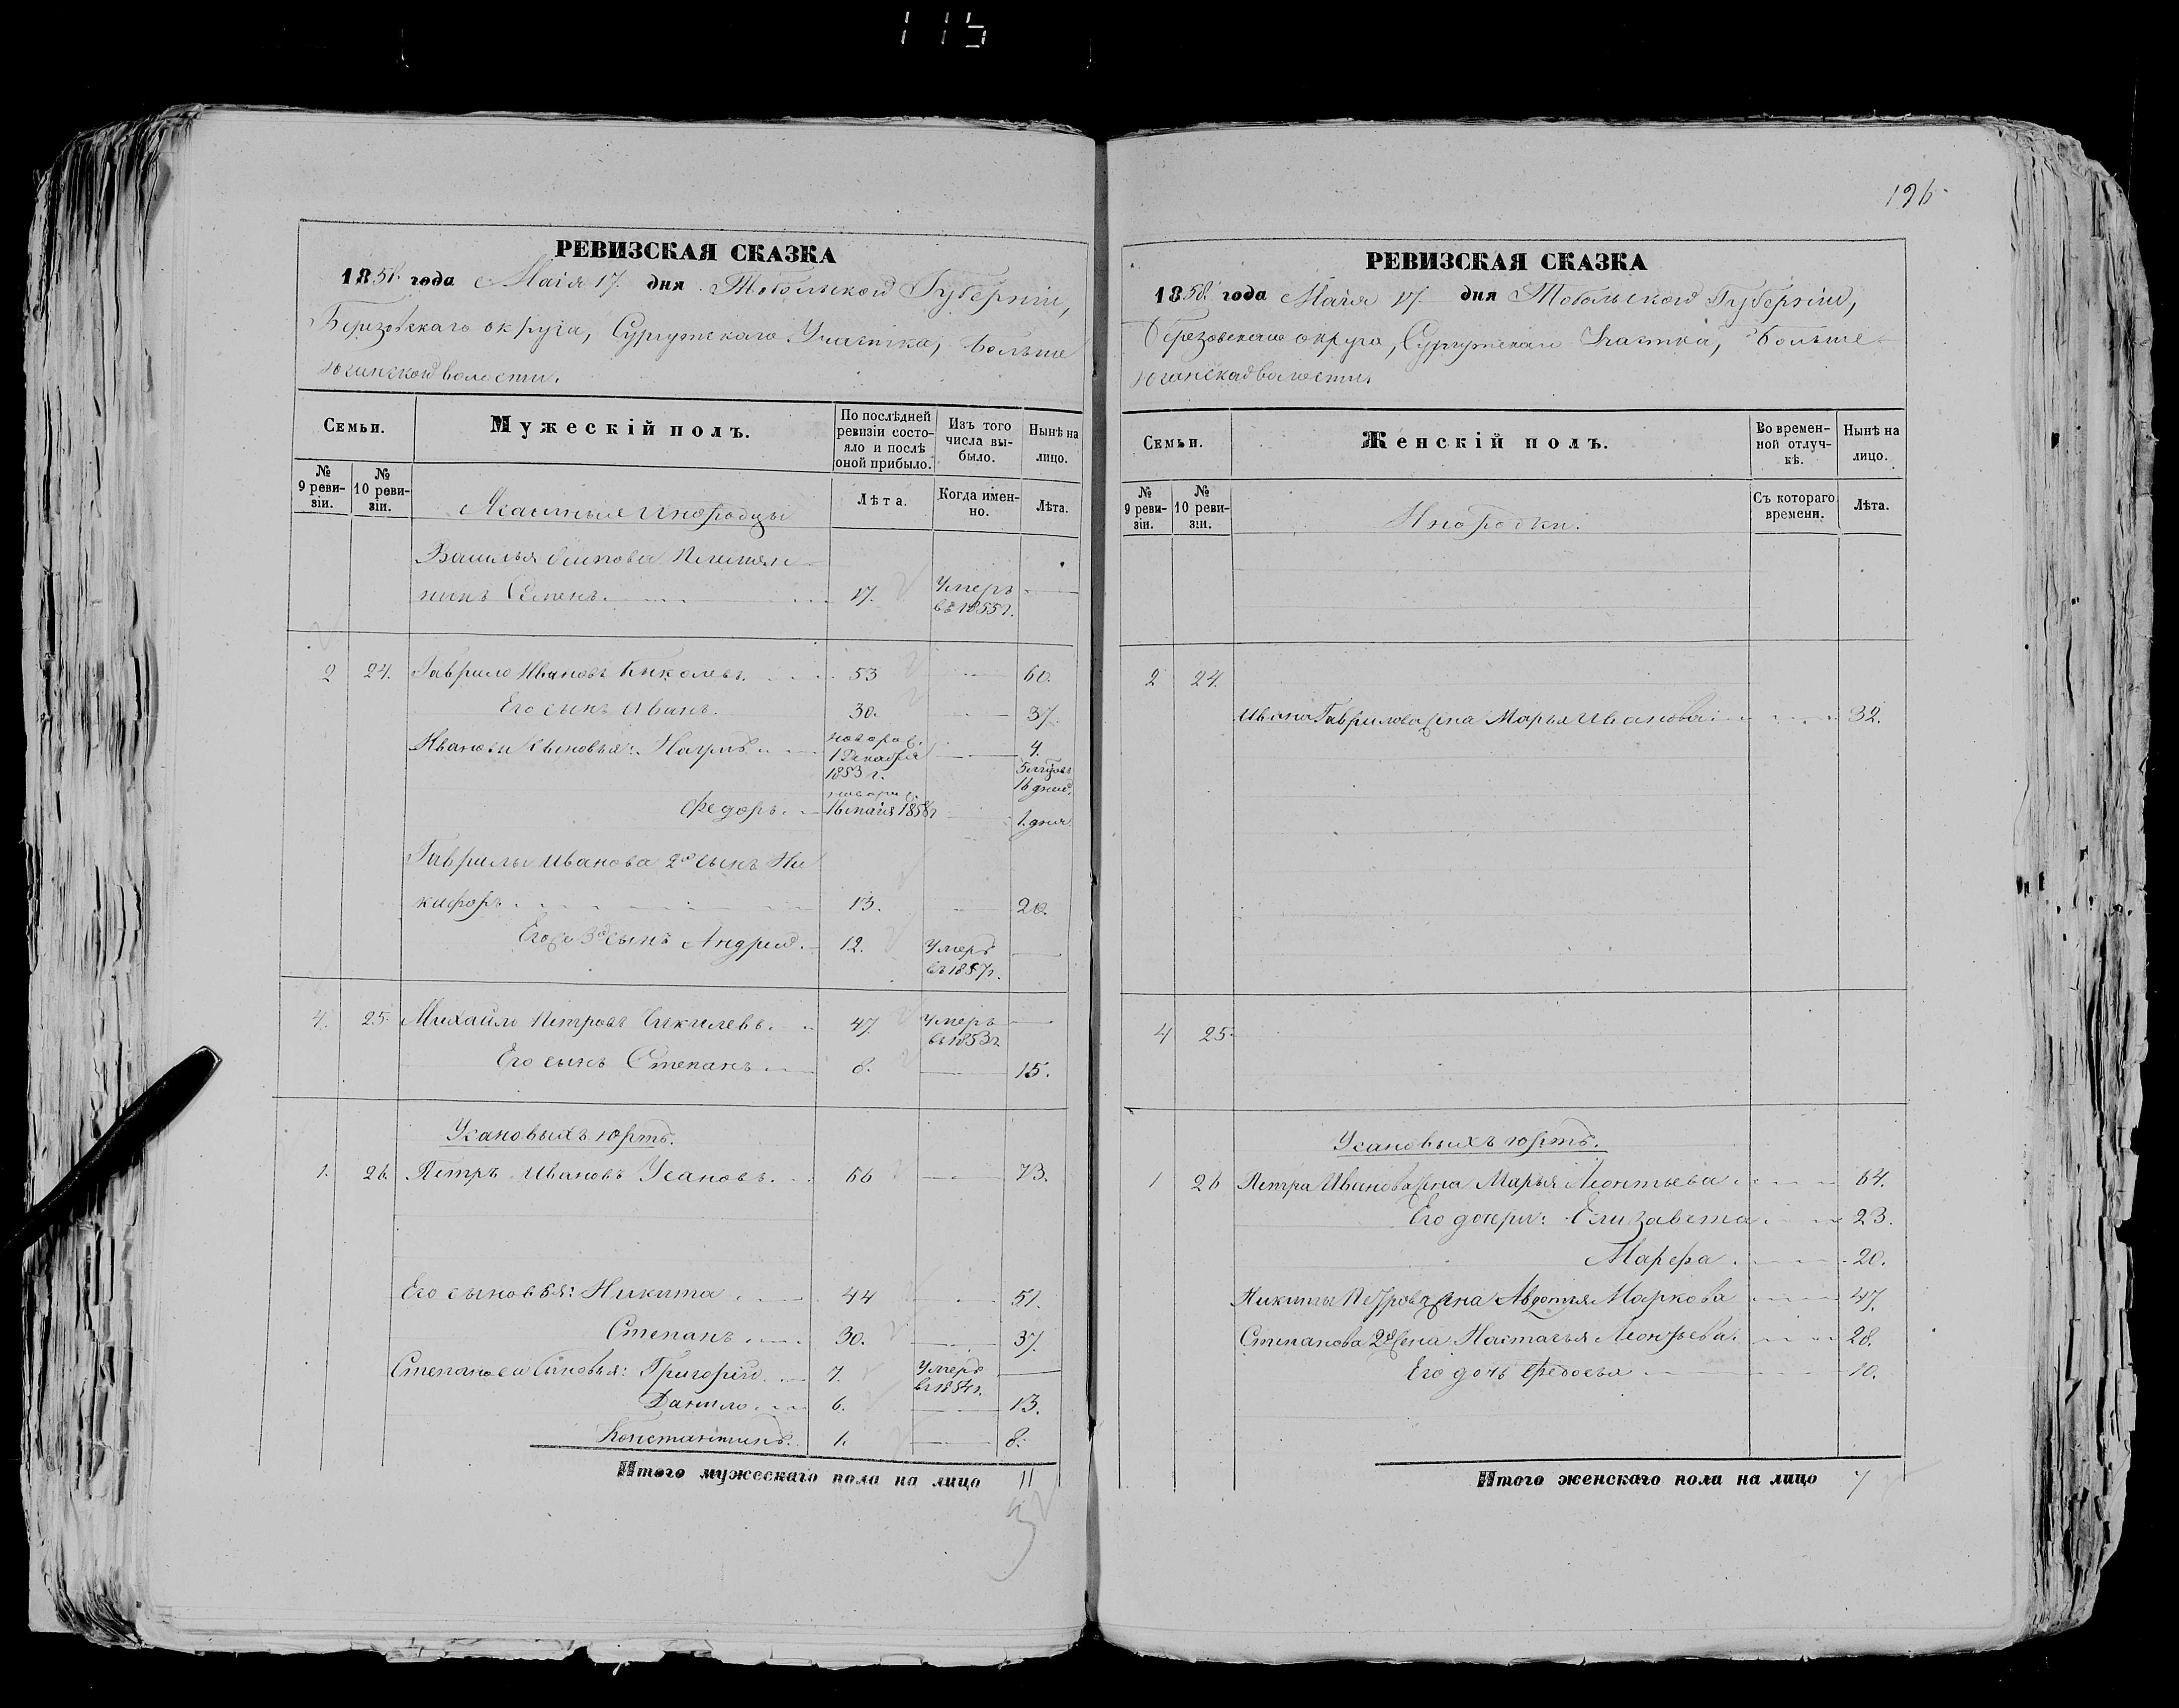 115
РЕВИЗСКАЯ СКАЗКА
1858 года Маія 17 дня Тобольской Губерніи,
Березовскаго округа, Сургутскаго Участка, Больше
Юганской волости.
Семьи.
Мужескій полъ.
По послѣдней ревизіи состояло и послѣ оной прибыло.
Изъ того числа выбыло.
Нынѣ на лицо.
№ 9 ревизіи.
№ 10 ревизіи.
Ясашныя Инородцы
Лѣта.
Когда именно.
Лѣта.
Василья Осипова племян
никъ Семенъ. 17. Умеръ въ 1855 г. —
2 24. Гаврило Ивановъ 53 — 60.
Его сынъ Иванъ. 30. — 37.
Ивановы сыновья: новорож. 1 Декабря 1853 г. — 4. 5 мѣсяц. 16 дней.
Федоръ. новорож. 16 маія 1858 г. — 1. дня.
Гаврилы Иванова 2й сынъ Ни
кифоръ 13. — 20.
Его же 3й сынъ Андрей. 12. Умеръ въ 1857 г. —
4. 25. Михайло Петровъ 47. Умеръ въ 1853 г. —
Его сынъ Степанъ 8. — 15.
Усановыхъ юртъ.
1. 26. Петръ Ивановъ Усановъ. 66 — 73.
Его сыновья: Никита 44 — 51.
Степанъ 30. — 37.
Степановы сыновья: Григорій 7. Умеръ въ 1854 г. —
Данило 6. — 13.
Константинъ. 1. — 8.
Итого мужескаго пола на лицо 11
196
РЕВИЗСКАЯ СКАЗКА
1858 года Маія 17 дня Тобольской Губерніи,
Березовскаго округа, Сургутскаго Участка, Больше-
Юганской волости.
Семьи.
Женскій полъ.
Во временной отлучкѣ.
Нынѣ на лицо.
№ 9 ревизіи.
№ 10 ревизіи.
Инородки.
Съ котораго времени.
Лѣта.
2 24.
Ивана Гаврилова жена Марья Иванова 32.
4 25.
Усановыхъ юртъ.
1 26 Петра Иванова жена Марья Леонтьева 64.
Его дочери: Елизавета 23.
Марфа 20.
Никиты Петрова жена Авдотья Маркова 47.
Степанова 2я жена Настасья 28.
Его дочь Федосья 10.
Итого женскаго пола на лицо 7